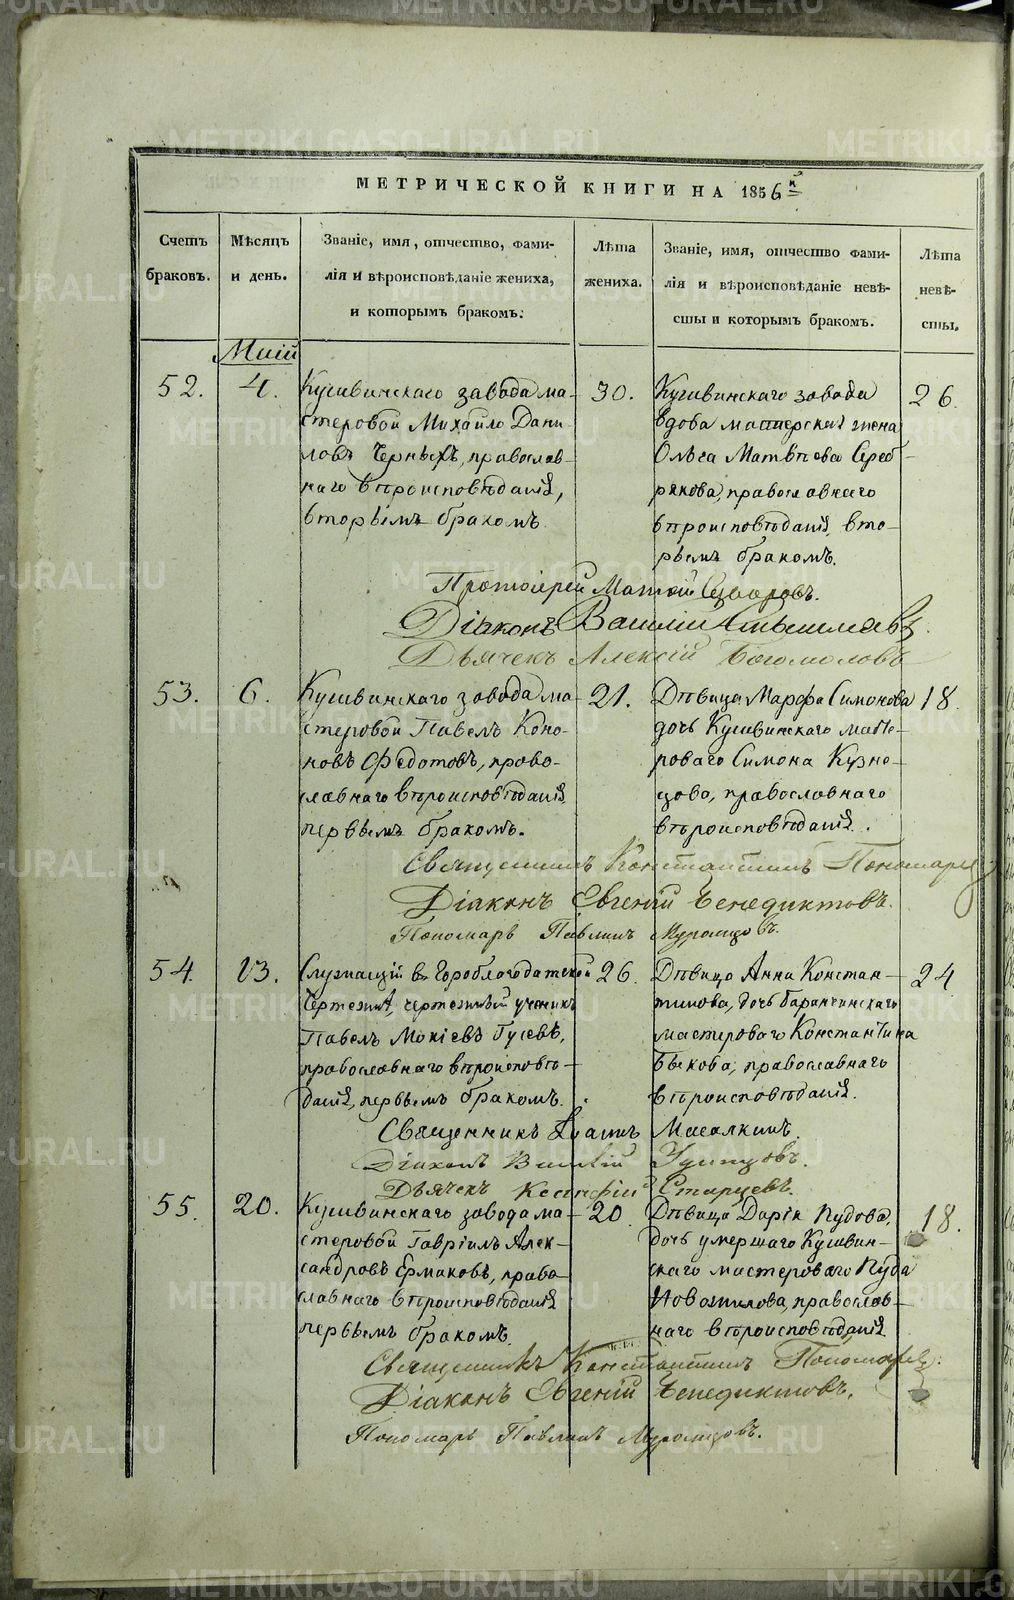 МЕТРИЧЕСКОЙ КНИГИ НА 1856й
Счетъ браковъ.
Мѣсяцъ и день.
Званіе, имя, отчество, фами-
лія и вѣроисповѣданіе жениха,
и которымъ бракомъ.
Лѣта жениха.
Званіе, имя, отчество фами-
лія и вѣроисповѣданіе невѣ-
сты и которымъ бракомъ.
Лѣта невѣ-
сты.
Маій
52. 4.
Кушвинскаго завода ма-
стеровой Михайло Дани
ловъ Черныхъ, православ-
наго вѣроисповѣданія,
вторымъ бракомъ
30.
Кушвинскаго завода
вдова мастерская жена
Ольга Матвѣева Сереб-
рякова, православнаго
вѣроисповѣданія, вто-
рымъ бракомъ.
26.
Протоіерей
Діаконъ Василій
Дьячекъ Алексій Богомоловъ
53. 6.
Кушвинскаго завода ма-
стеровой Павелъ Коно-
новъ Федотовъ, право-
славнаго вѣроисповѣданія
первымъ бракомъ.
21.
Дѣвица Марфа Симонова
дочь Кушвинскаго масте-
роваго Симона Кузне-
цова, православнаго
вѣроисповѣданія.
18.
Священникъ Константинъ Пономаревъ
Діаконъ Евгеній Бенедиктовъ.
Пономарь Павлинъ Муромцовъ.
54. 13.
Служащій въ Гороблагодатской
Чертежнѣ, чертежный ученикъ
Павелъ Мокіевъ Гусевъ,
православнаго вѣроисповѣ-
данія, первымъ бракомъ.
26.
Дѣвица Анна Констан-
тинова, дочь Баранчинскаго
мастероваго Константина
Быкова, православнаго
вѣроисповѣданія.
24
Священникъ Іоаннъ
Діаконъ Василій
Дьячекъ Ксенофій Старцевъ.
55. 20.
Кушвинскаго завода ма-
стеровой Гавріилъ Алек-
сандровъ Ермаковъ, право-
славнаго вѣроисповѣданія
первымъ бракомъ.
20.
Дѣвица Дарія Пудова,
дочь умершаго Кушвин-
скаго мастероваго Пуда
Новожилова, православ-
наго вѣроисповѣданія
18.
Священникъ Константинъ Пономаревъ.
Діаконъ Евгеній Бенедиктовъ.
Пономарь Павлинъ Муромцовъ.
METRIKI.GASO-URAL.RU